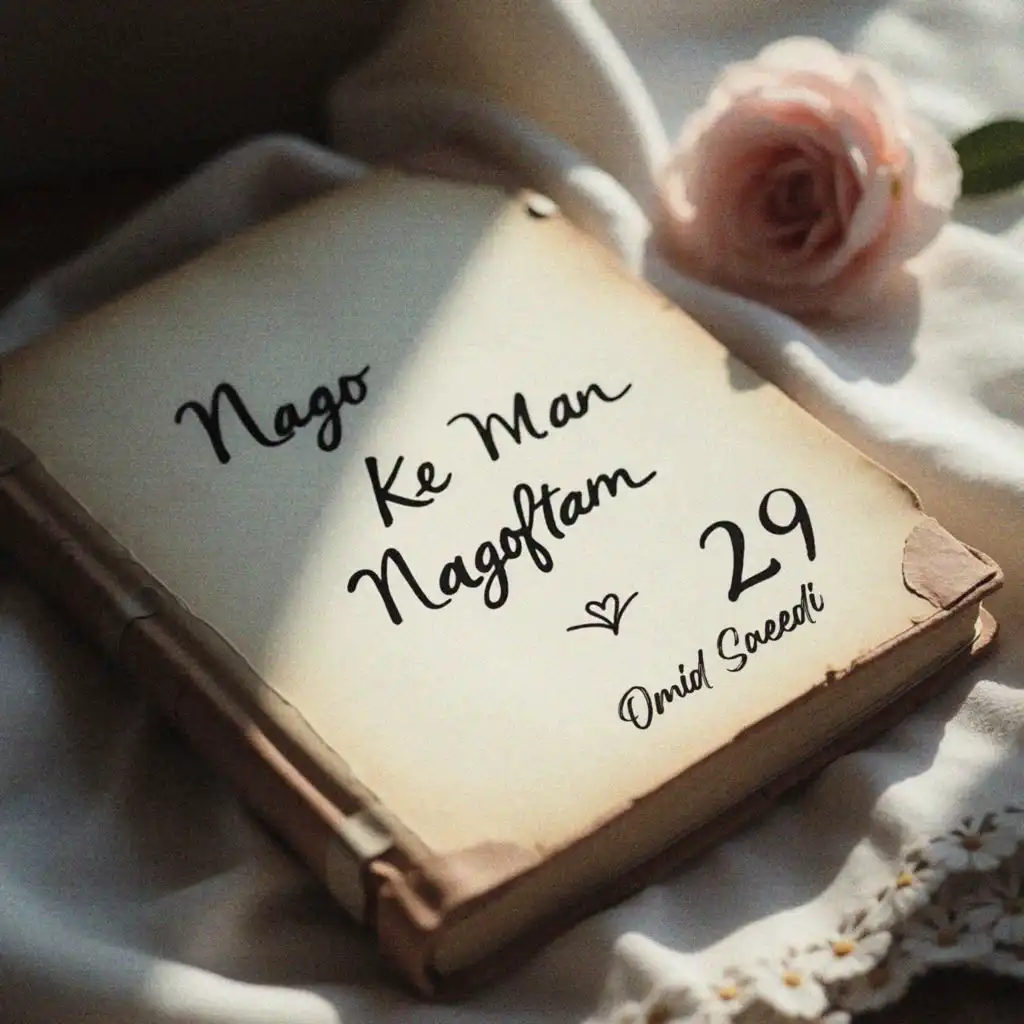 Nago
Ke Man
Nagoftam
29
Omid Saeedi